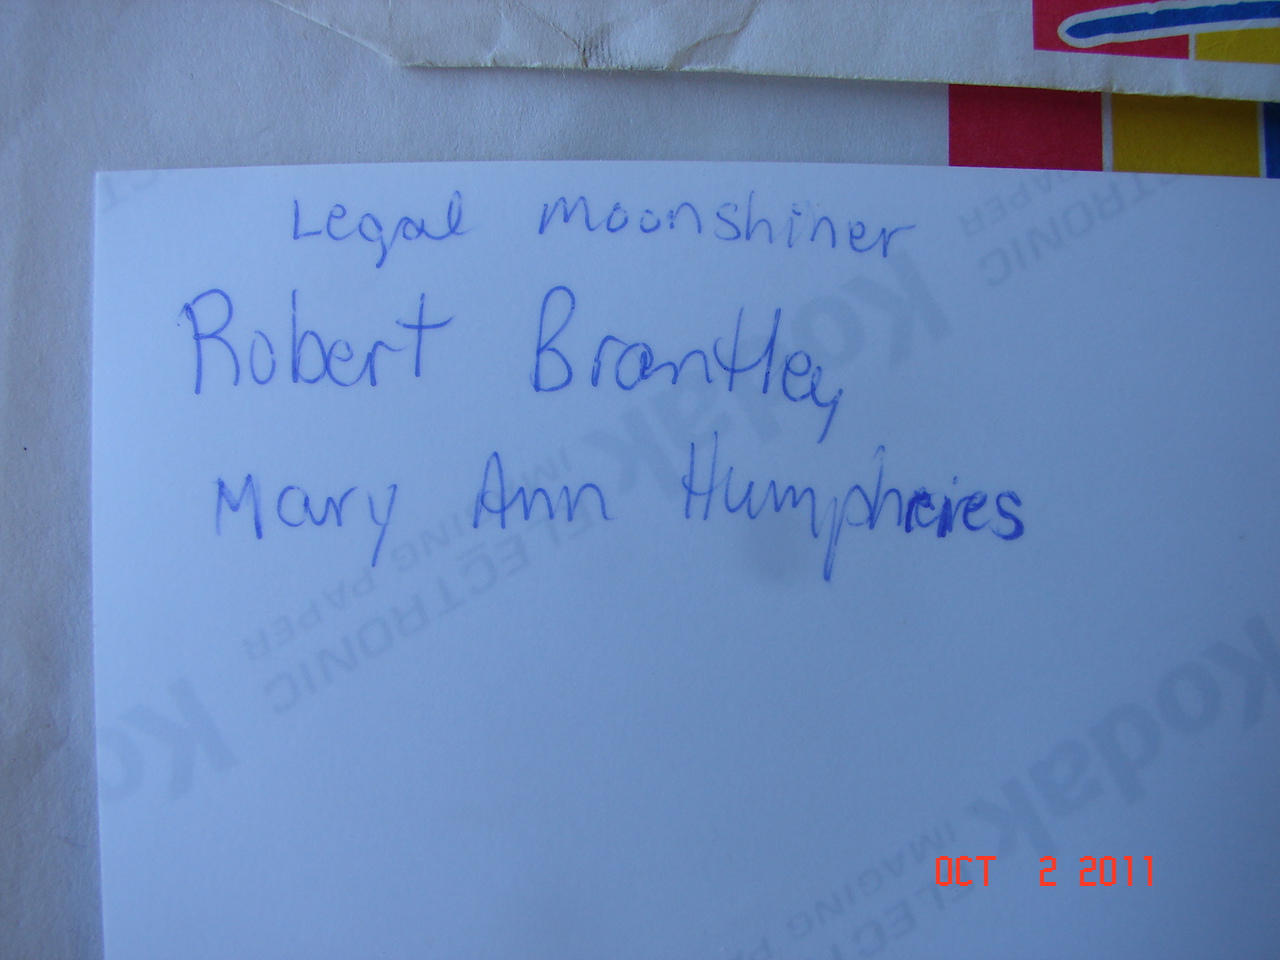 Legal Moonshiner
Robert Brantley
Mary Ann Humpheries
Kodak
ELECTRONIC
IMAGING PAPER
Kodak
ELECTRONIC
IMAGING PAPER
Kodak
OCT 2 2011